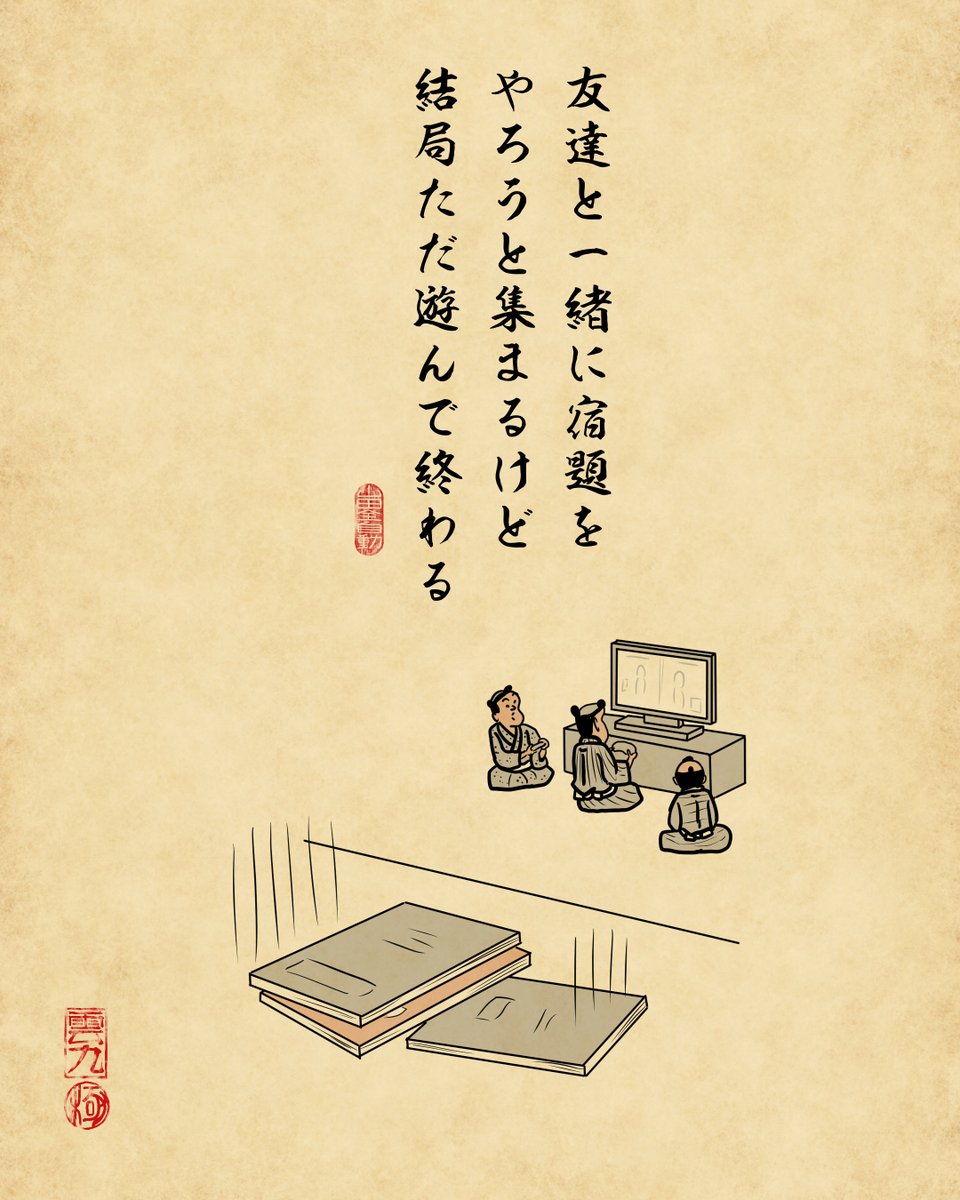 友達と一緒に宿題を
やろうと集まるけど
結局ただ遊んで終わる
雲九
極